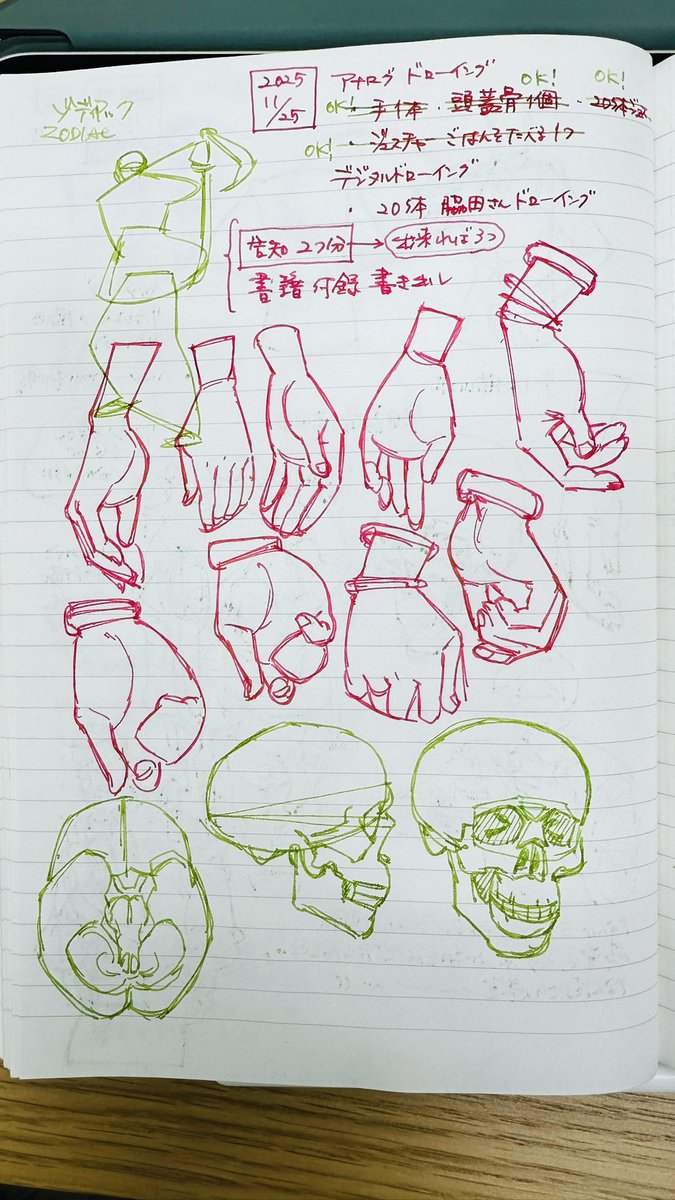 ゾディアック
ZODIAC
2025
11/25
アナログ ドローイング
OK! OK! OK!
・手1本 ・頭蓋骨1個 ・20体ジェス
OK! ・ジェスチャー ごはんをたべる 1つ
デジタルドローイング
・20体 脇田さんドローイング
告知 2つ分 → 出来れば3つ
書籍付録 書き出し